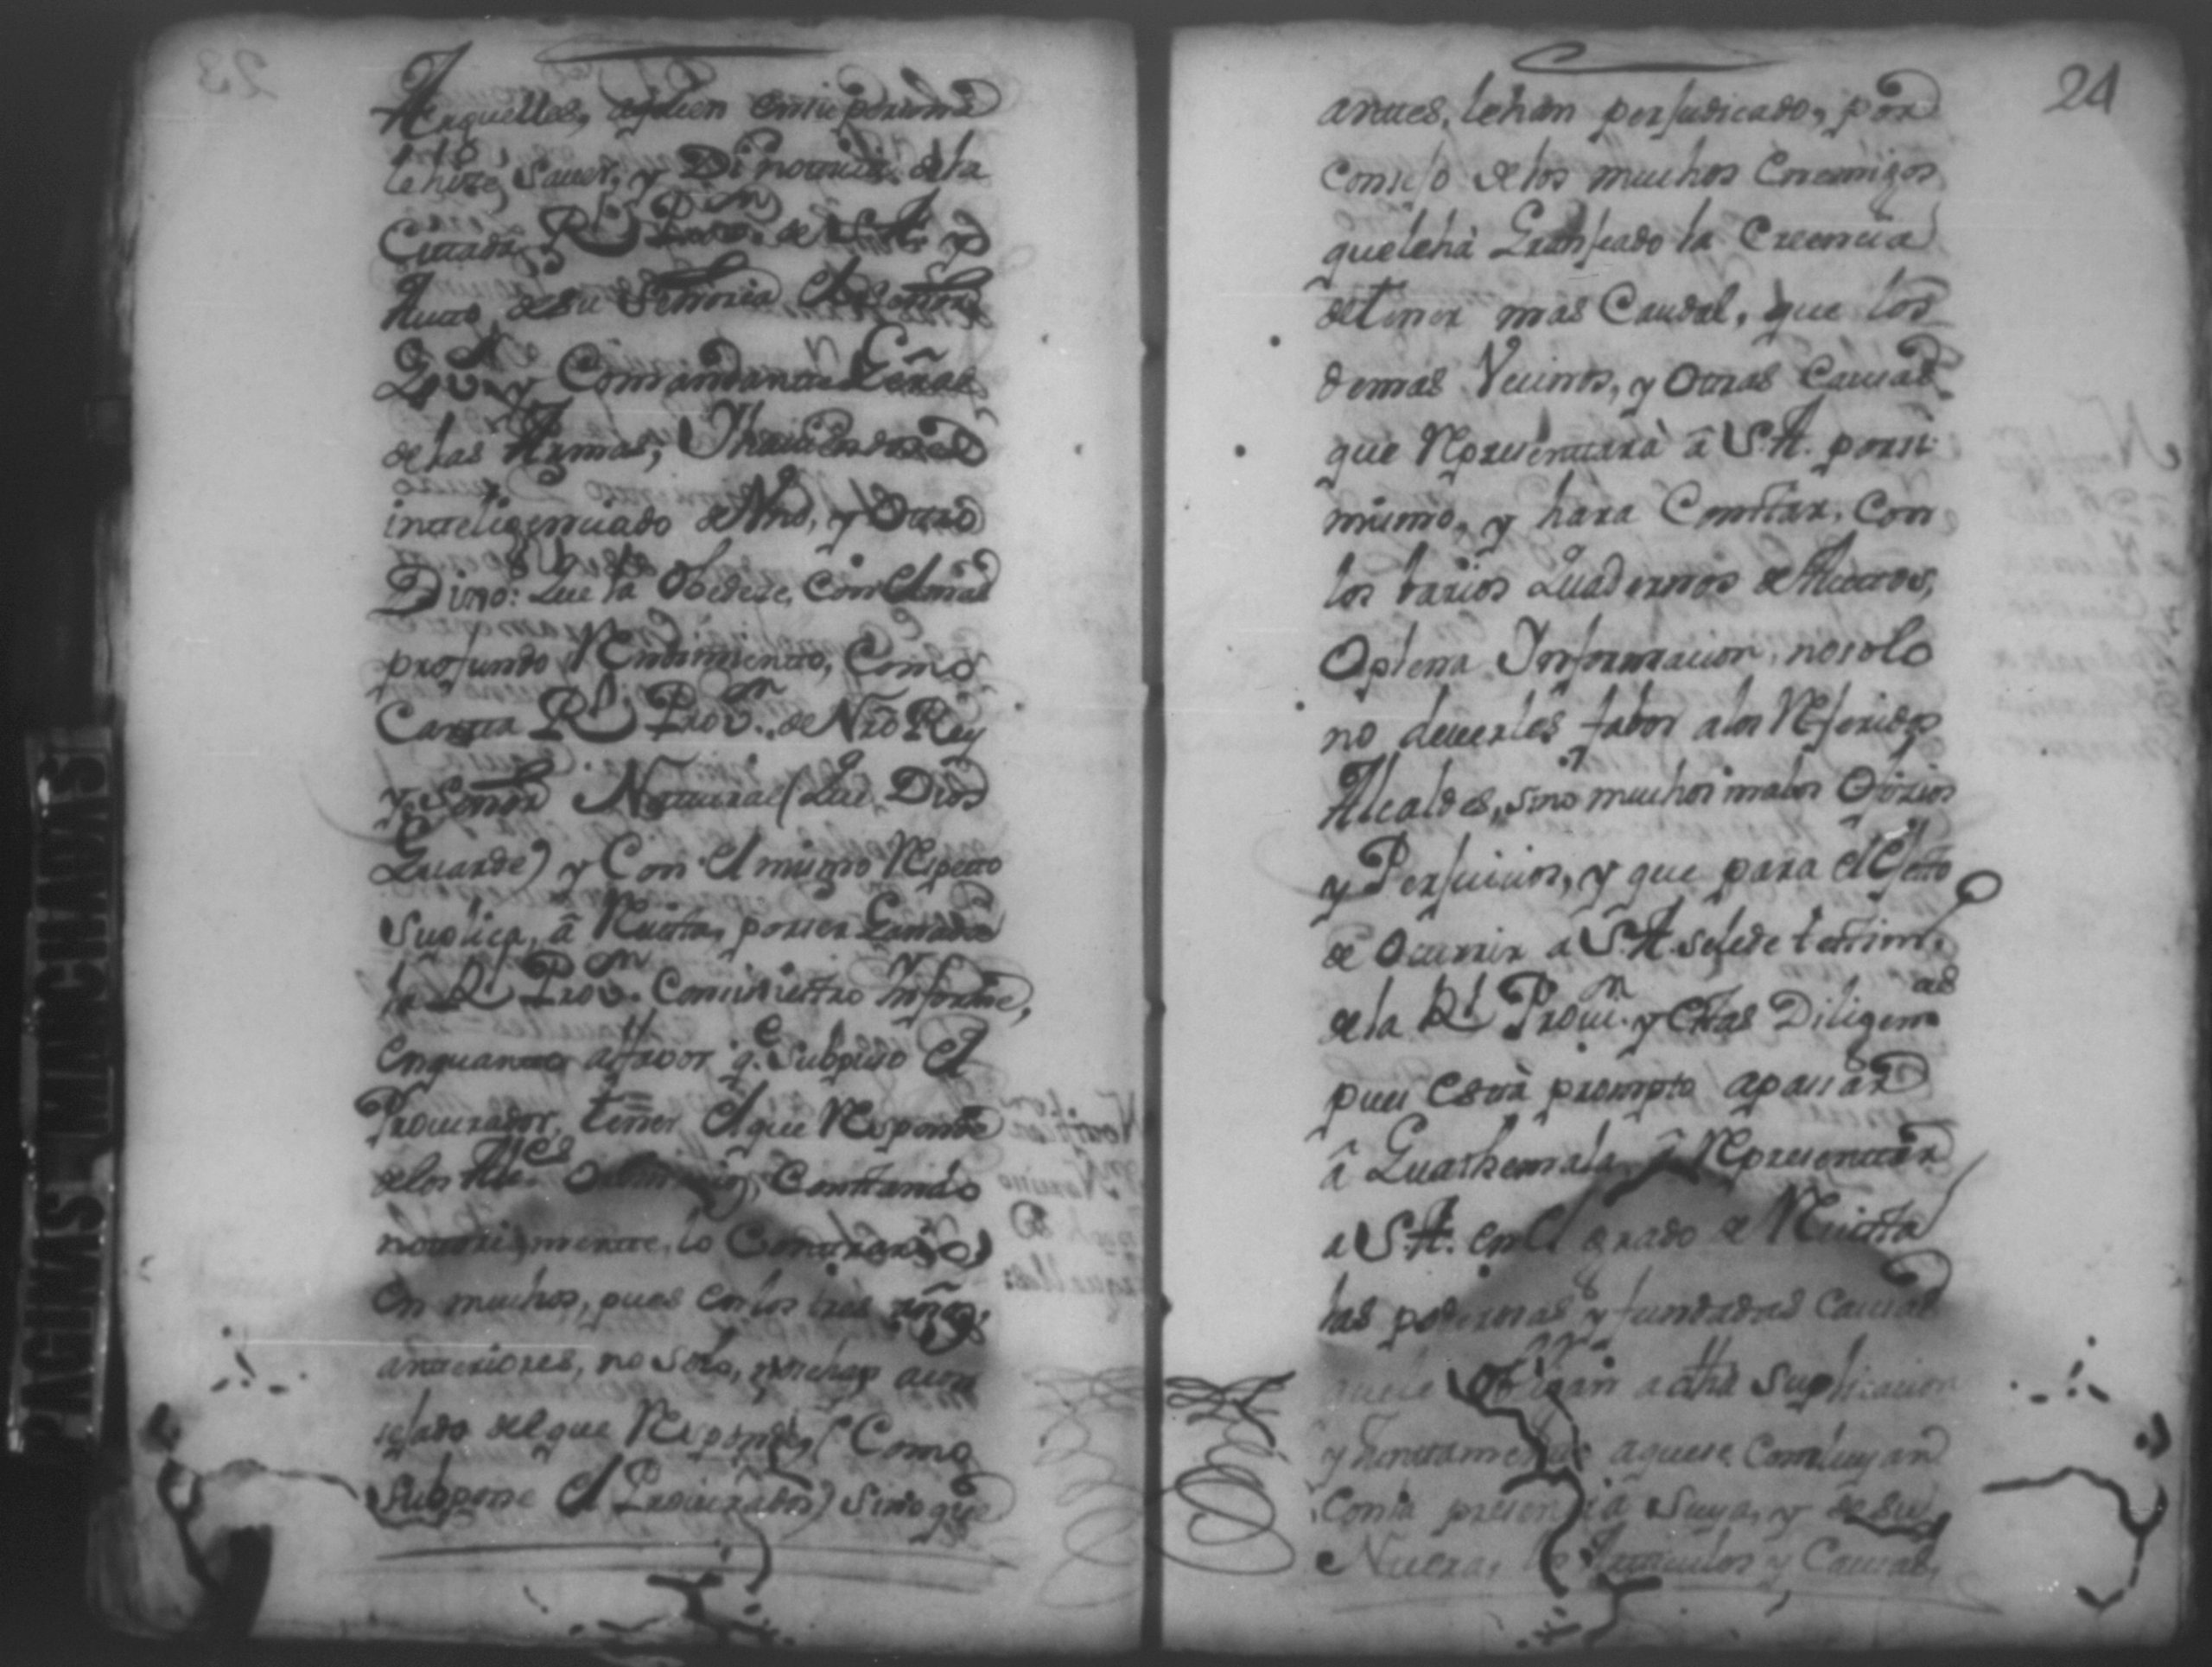 Arguelles, aquien en su persona
le hize Saver, y Di noticia de la
Citada Rl Provn. de S.A. y
Auto de su Señoria el Señor
Govr. y Comandante Genàl
de las Armas, Thaviendose
inteligenciado de Uno, y Otro
Dixo: Que la Obedeze, Con el mas
profundo Rendimiento, Como
Carta Rl Provn. de Nro Rey
y Señor Natural (Que Dios
Guarde) y Con el mismo Respecto
Suplica, â Revista, por ser Ganada
la Rl Provn. Con siniestro Informe,
en quanto al favor q.e Subpuso el
Procurador, tenèr el que Responde
de los Alces Ordinarios, Constando
notoriamente, lo Contrario,
en muchos, pues en los tres años,
anteriores, no Solo, no se han acon
sejado del que Responde, (Como
Subpone el Procurador) Sino que
24
antes, lehan perjudicado, por
Consejo de los muchos Enemigos
que leha Granjeado la Creencia
de tener mas Caudal, que los
demas Vecinos, y Otras Causas
que Representarà â S.A. por si
mismo, y hara Constar, Con
los barios Quadernos de Autos,
O plena Informacion, no solo
no deverles fabor a los Referidos
Alcaldes, sino muchos malos Oficios
y Perjuicios, y que para el Efecto
de Ocurrir a S.A. se le de testim.o
de la Rl Provn. y Estas Diligenas
pues Està prompto a pasar
â Guathemala, â Representar
a S.A. en el grado de Revista
las poderosas y fundadas Causas
que le Obligan a esta Suplicacion
y Juntamente a que se Concluyan
Con la presencia Suya, y de su
Nuera, los Articulos y Causas,
PAGINAS MANCHADAS